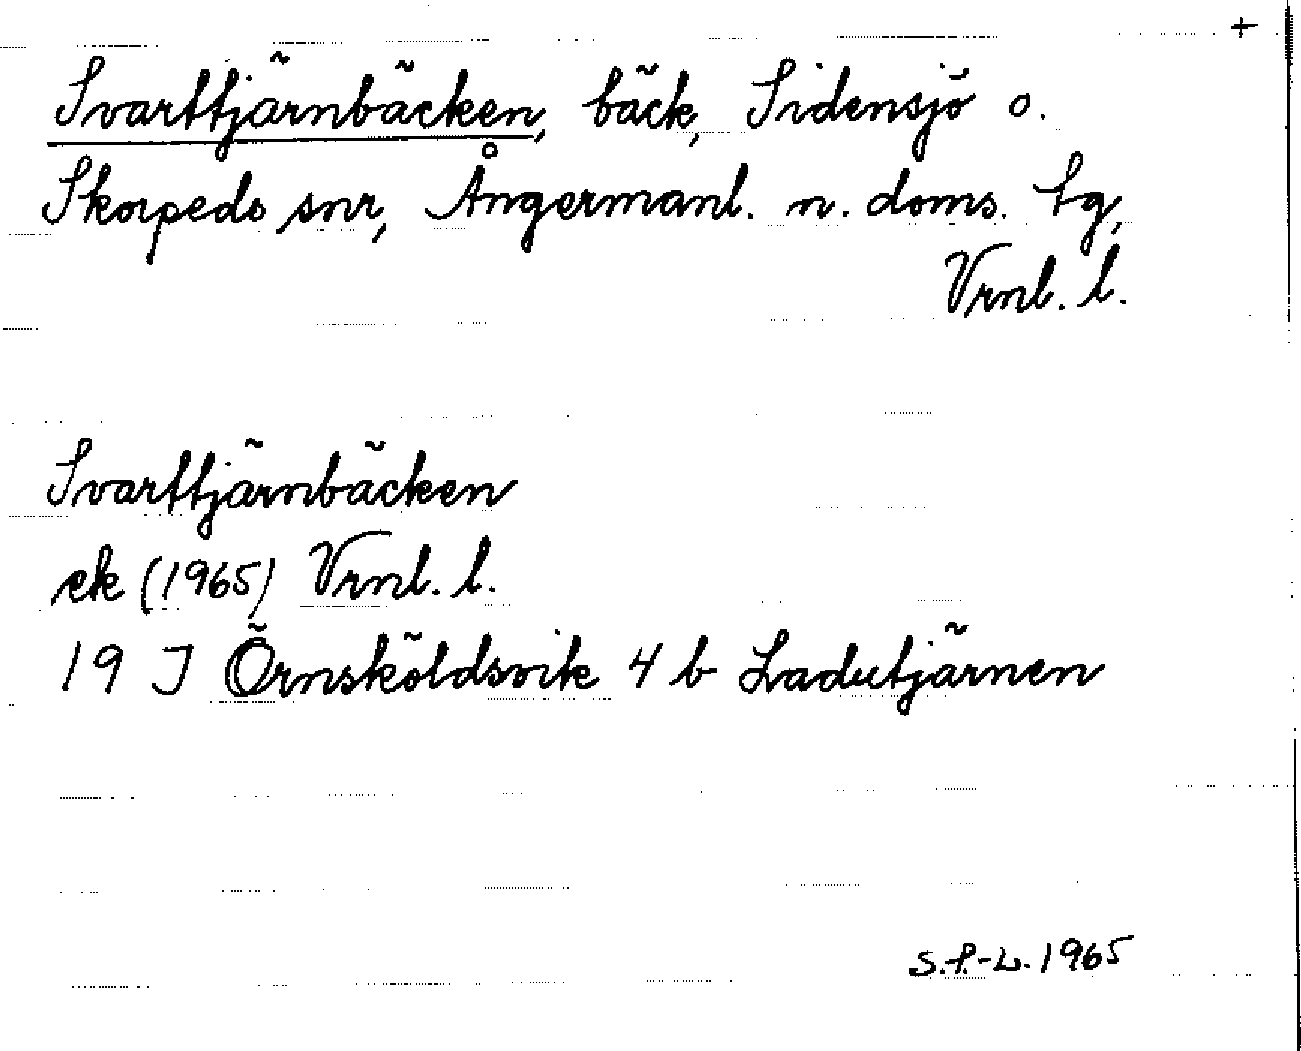 +
Svarttjärnbäcken, bäck, Sidensjö o.
Skorpeds snr, Ångermanl. n. doms. tg,
Vrnl. l.
Svarttjärnbäcken
ek (1965) Vrnl. l.
19 J Örnsköldsvik 4 b Ladutjärnen
S.P-L. 1965